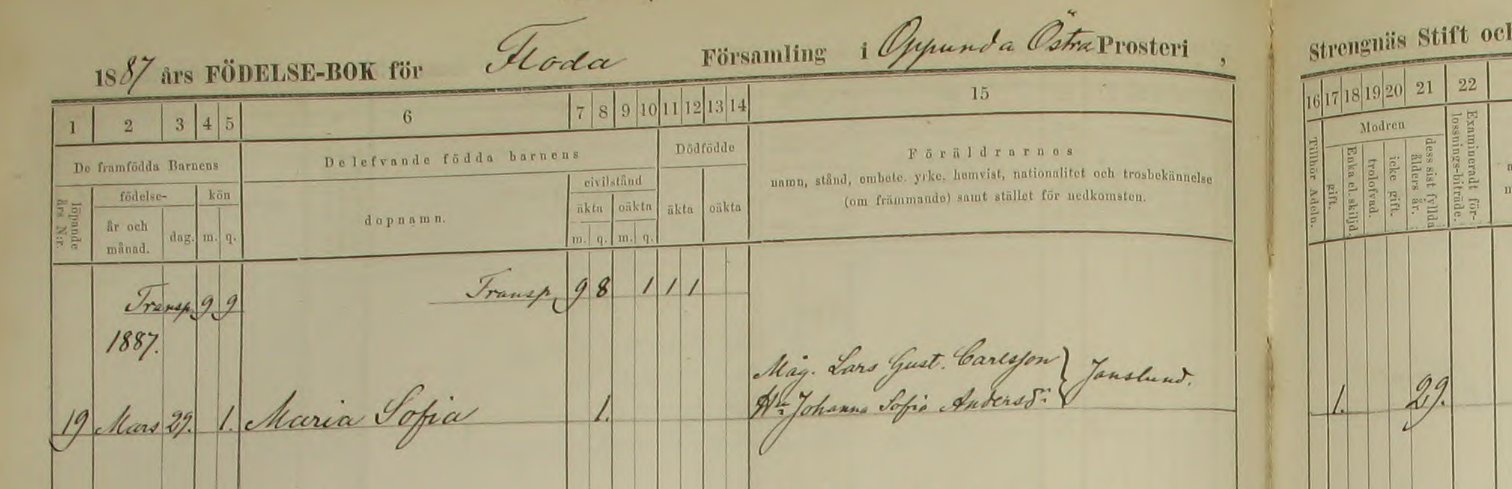 1887 års FÖDELSE-BOK för Floda Församling i Oppunda Östra Prosteri , Strengnäs Stift och
1 2 3 4 5 6 7 8 9 10 11 12 13 14 15 16 17 18 19 20 21 22
De framfödda Barnens De lefvande födda barnens Dödfödde Föräldrarnes Modren
löpande års N:r. födelse- kön dopnamn. civilstånd äkta oäkta namn, stånd, embete, yrke, hemvist, nationalitet och trosbekännelse
år och månad. dag. m. q. äkta oäkta (om främmande) samt stället för nedkomsten.
m. q. m. q.
Tillhör Adeln. gift. Enka el. skiljd. trolofvad. icke gift. dess sist fyllda ålders år. Examineradt förlossnings-biträde.
Transp. 9 9 Transp. 9 8 1 1 1
1887.
Måg. Lars Gust. Carlsson
19 Mars 29. 1. Maria Sofia 1. Hu Johanna Sofia Andersdr Janslund. 1. 29.